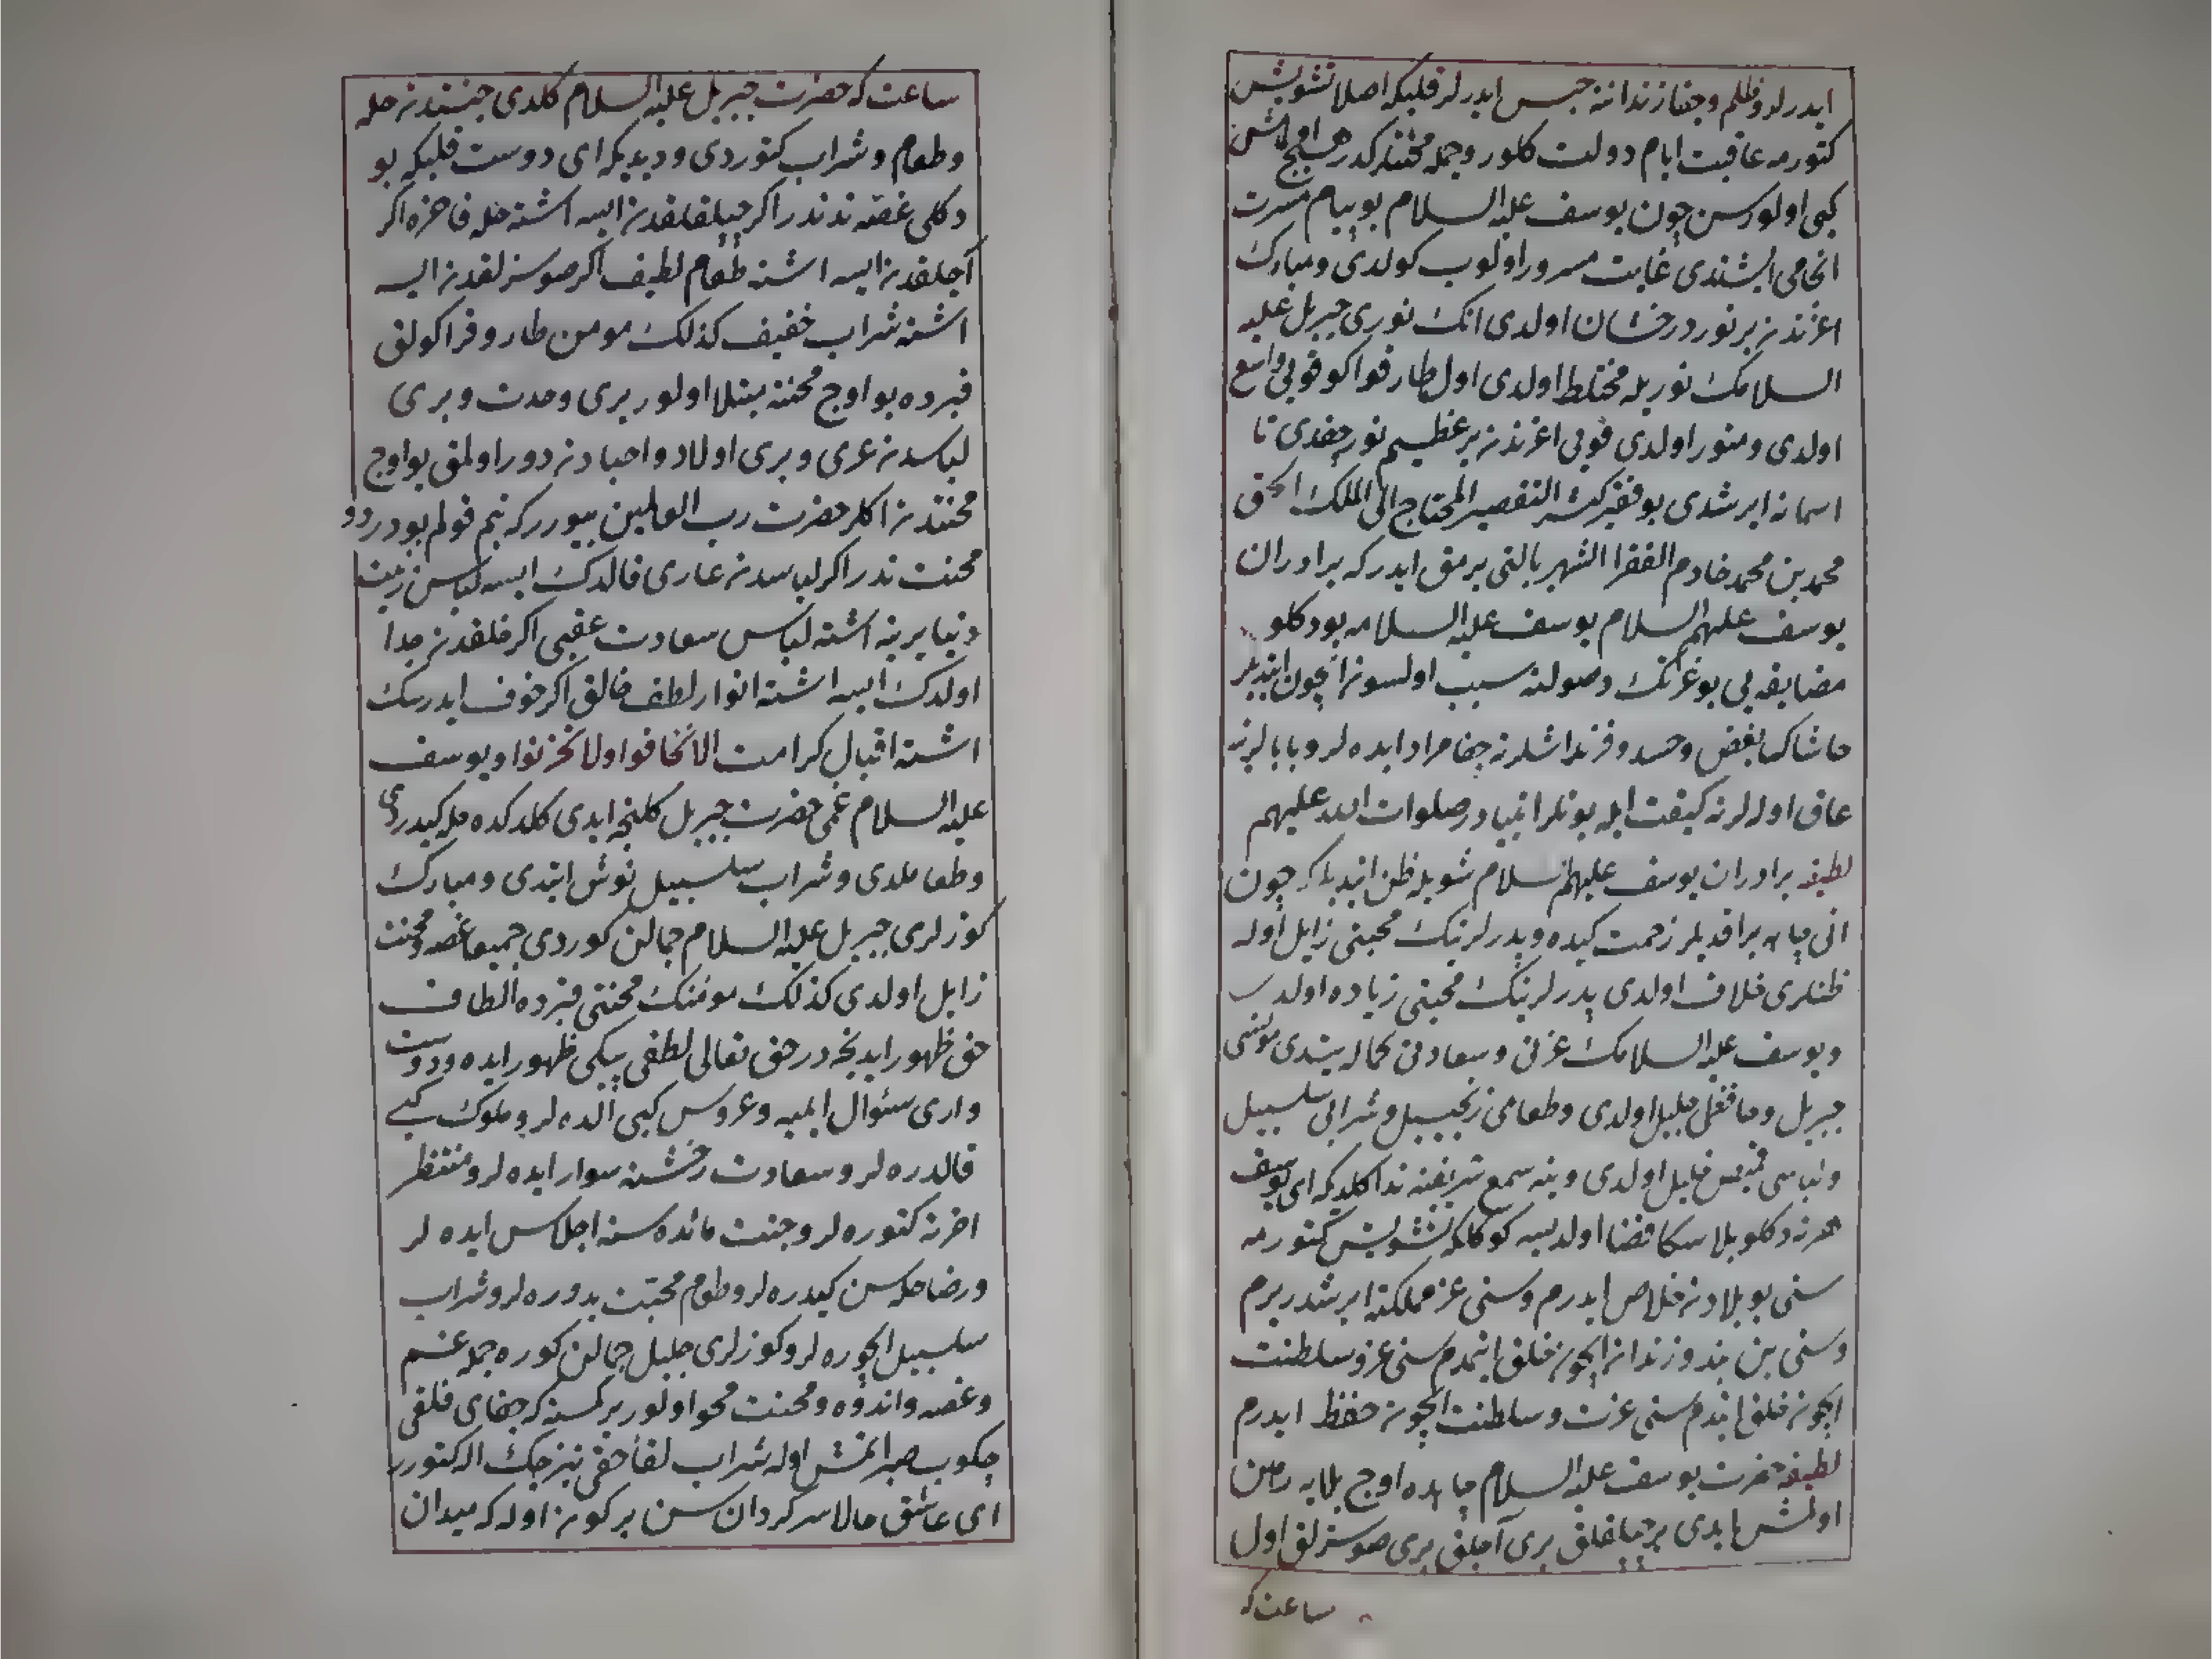 ايدرلر و ظلم و جفا زنداننه حبس ايدرلر قلبكه اصلا تشويش
كتورمه عاقبت ايام دولت كلور و جمله محنتلر كدر هيچ
كبى اولورسن چون يوسف عليه السلام بو پيام مسرت
انجامى ايشتدى غايت مسرور اولوب كولدى و مبارك
اغزندن بر نور درخشان اولدى انك نورى جبريل عليه
السلامك نوريله مختلط اولدى اول طار قراكو قويى واسع
اولدى و منور اولدى قويى اغزندن بر عظيم نور چقدى تا
اسمانه ايرشدى بو فقير كثير التقصير المحتاج الى الملك الحق
محمد بن محمد خادم الفقرا الشهير بالتى برمق ايدر كه برادران
يوسف عليهم السلام يوسف عليه السلامه بو دكلو
مضايقه يى بو عزتك وصولنه سبب اولسون ايچون ايتديلر
حاشا كه بغض و حسد و قرنداشلرنه جفا مراد ايده لر و بابالرنه
عاق اوله لر نه كيفت ايله بونلر انبيادر صلوات الله عليهم
لطيفه برادران يوسف عليهم السلام شويله ظن ايتديلر كه چون
انى چاهه براقديلر زحمت كيده و پدرلرينك محبتى زايل اوله
ظنلرى خلاف اولدى پدرلرينك محبتى زياده اولدى
و يوسف عليه السلامك عزتى و سعادتى كماله يتدى مونسى
جبريل و حافظى جليل اولدى و طعامى زنجبيل و شرابى سلسبيل
و لباسى قميص خليل اولدى و ينه سمع شريفنه ندا كلدى كه اى يوسف
هر نه دكلو بلا سكا قضا اولديسه كوكلكه تشويش كتورمه
سنى بو بلادن خلاص ايدرم و سنى عز مملكته ايرشدريرم
و سنى بن بند و زندان ايچون خلق ايتمدم سنى عز و سلطنت
ايچون خلق ايتدم سنى عزت و سلطنت ايچون حفظ ايدرم
لطيفه حضرت يوسف عليه السلام چاهده اوچ بلايه رهين
اولمش ايدى بر چپلاقلق برى آچلق برى صوسزلق اول
ساعت كه
ساعت كه حضرت جبريل عليه السلام كلدى جنتدن حله
و طعام و شراب كتوردى و ديديكه اى دوست قلبكه بو
دكلى غصه ندندر اكر چپلاقلقدن ايسه اشته حله فاخره اكر
آچلقدن ايسه اشته طعام لطيف اكر صوسزلقدن ايسه
اشته شراب خفيف كذلك مومن طار و قراكولق
قبرده بو اوچ محنته مبتلا اولور برى وحدت و برى
لباسدن عرى و برى اولاد و احبادن دور اولمق بو اوچ
محنتدن اكلر حضرت رب العالمين بيورر كه بنم قولم بو درد و
محنت ندر اكر لباسدن عارى قالدك ايسه لباس زينت
دنيا يرينه اشته لباس سعادت عقبى اكر خلقدن جدا
اولدك ايسه اشته انوار لطف خالق اكر خوف ايدرسك
اشته اقبال كرامت الا تخافوا ولا تحزنوا و يوسف
عليه السلام غمى حضرت جبريل كلنجه ايدى كلدكده حله كيدردى
و طعاملدى و شراب سلسبيل نوش ايتدى و مبارك
كوزلرى جبريل عليه السلام جمالن كوردى جميعا غصه و محنت
زايل اولدى كذلك مومنك محنتى قبرده الطاف
حق ظهور ايدنجه در حق تعالى لطفى پيكى ظهور ايده و دوست
وارى سئوال ايليه و عروس كبى الده لر و ملوك كبى
قالدره لر و سعادت رخشنه سوار ايده لر و منتظر
اخرته كتوره لر و جنت مائده سنه اجلاس ايده لر
و رضا حله سن كيدره لر و طعام محبت يدوره لر و شراب
سلسبيل ايچوره لر و كوزلرى جليل جمالن كوره جمله غم
و غصه و اندوه و محنت محو اولور بر كمسنه كه جفاى خلقى
چكوب صبر ايتمش اوله شراب لقا حقى تيز جك اله كتورر
اى عاشق حالا سركردان سن بر كون اوله كه ميدان